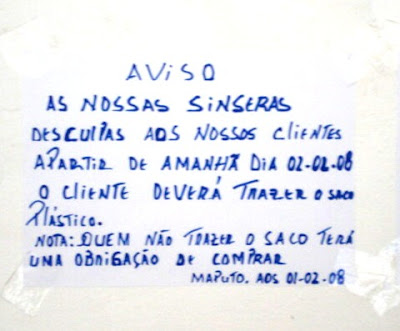 AViSO
AS NOSSAS SiNSERAS
DESCULPAS AOS NOSSOS CLiENTES
APARTiR DE AMANHÃ DiA 02-02-08
O CLiENTE DEVERÁ TRAZER O SACO
PLÁSTiCO.
NOTA: QUEM NÃO TRAZER O SACO TERÁ
UNA OBRiGAÇÃO DE COMPRAR
MAPUTO, AOS 01-02-08